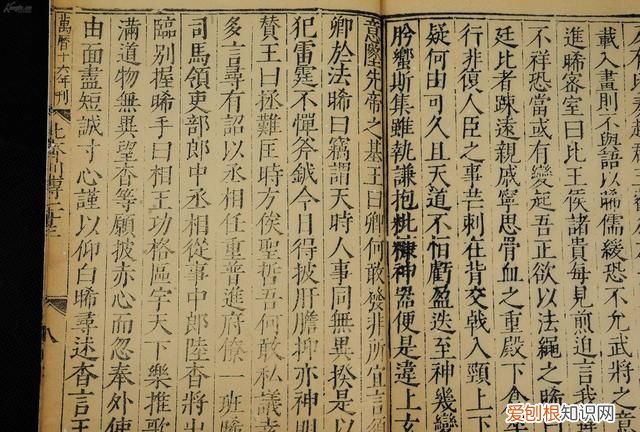 載入晝則不與語以晞儒緩恐不允武將之意
進晞密室曰比王侯諸貴每見煎迫言我
不祥恐當或有變起吾正欲以法繩之晞曰
廷比者疎遠親戚寧思骨血之重殿下倉
行非復人臣之事芒刺在背交戟入頸上下
疑何由可久且天道不恒虧盈迭至神幾變
肹蠁斯集雖執謙挹粃糠神器便是違上玄
意墜先帝之基王曰卿何敢發非所宜言須
卿於法晞曰竊謂天時人事同無異揆是以
犯雷霆不憚斧鉞今日得披肝膽抑亦神明
贊王曰拯難匡時方俟聖哲吾何敢私議幸
多言尋有詔以丞相任重普進府僚一班晞
司馬領吏部郎中丞相從事中郎陸杳將出
臨别握晞手曰相王功格區宇天下樂推歌
滿道物無異望杳等願披赤心而忽奉外使
由面盡短誠寸心謹以仰白晞尋述杳言王
萬曆十六年刊
八
爱刨根知识网